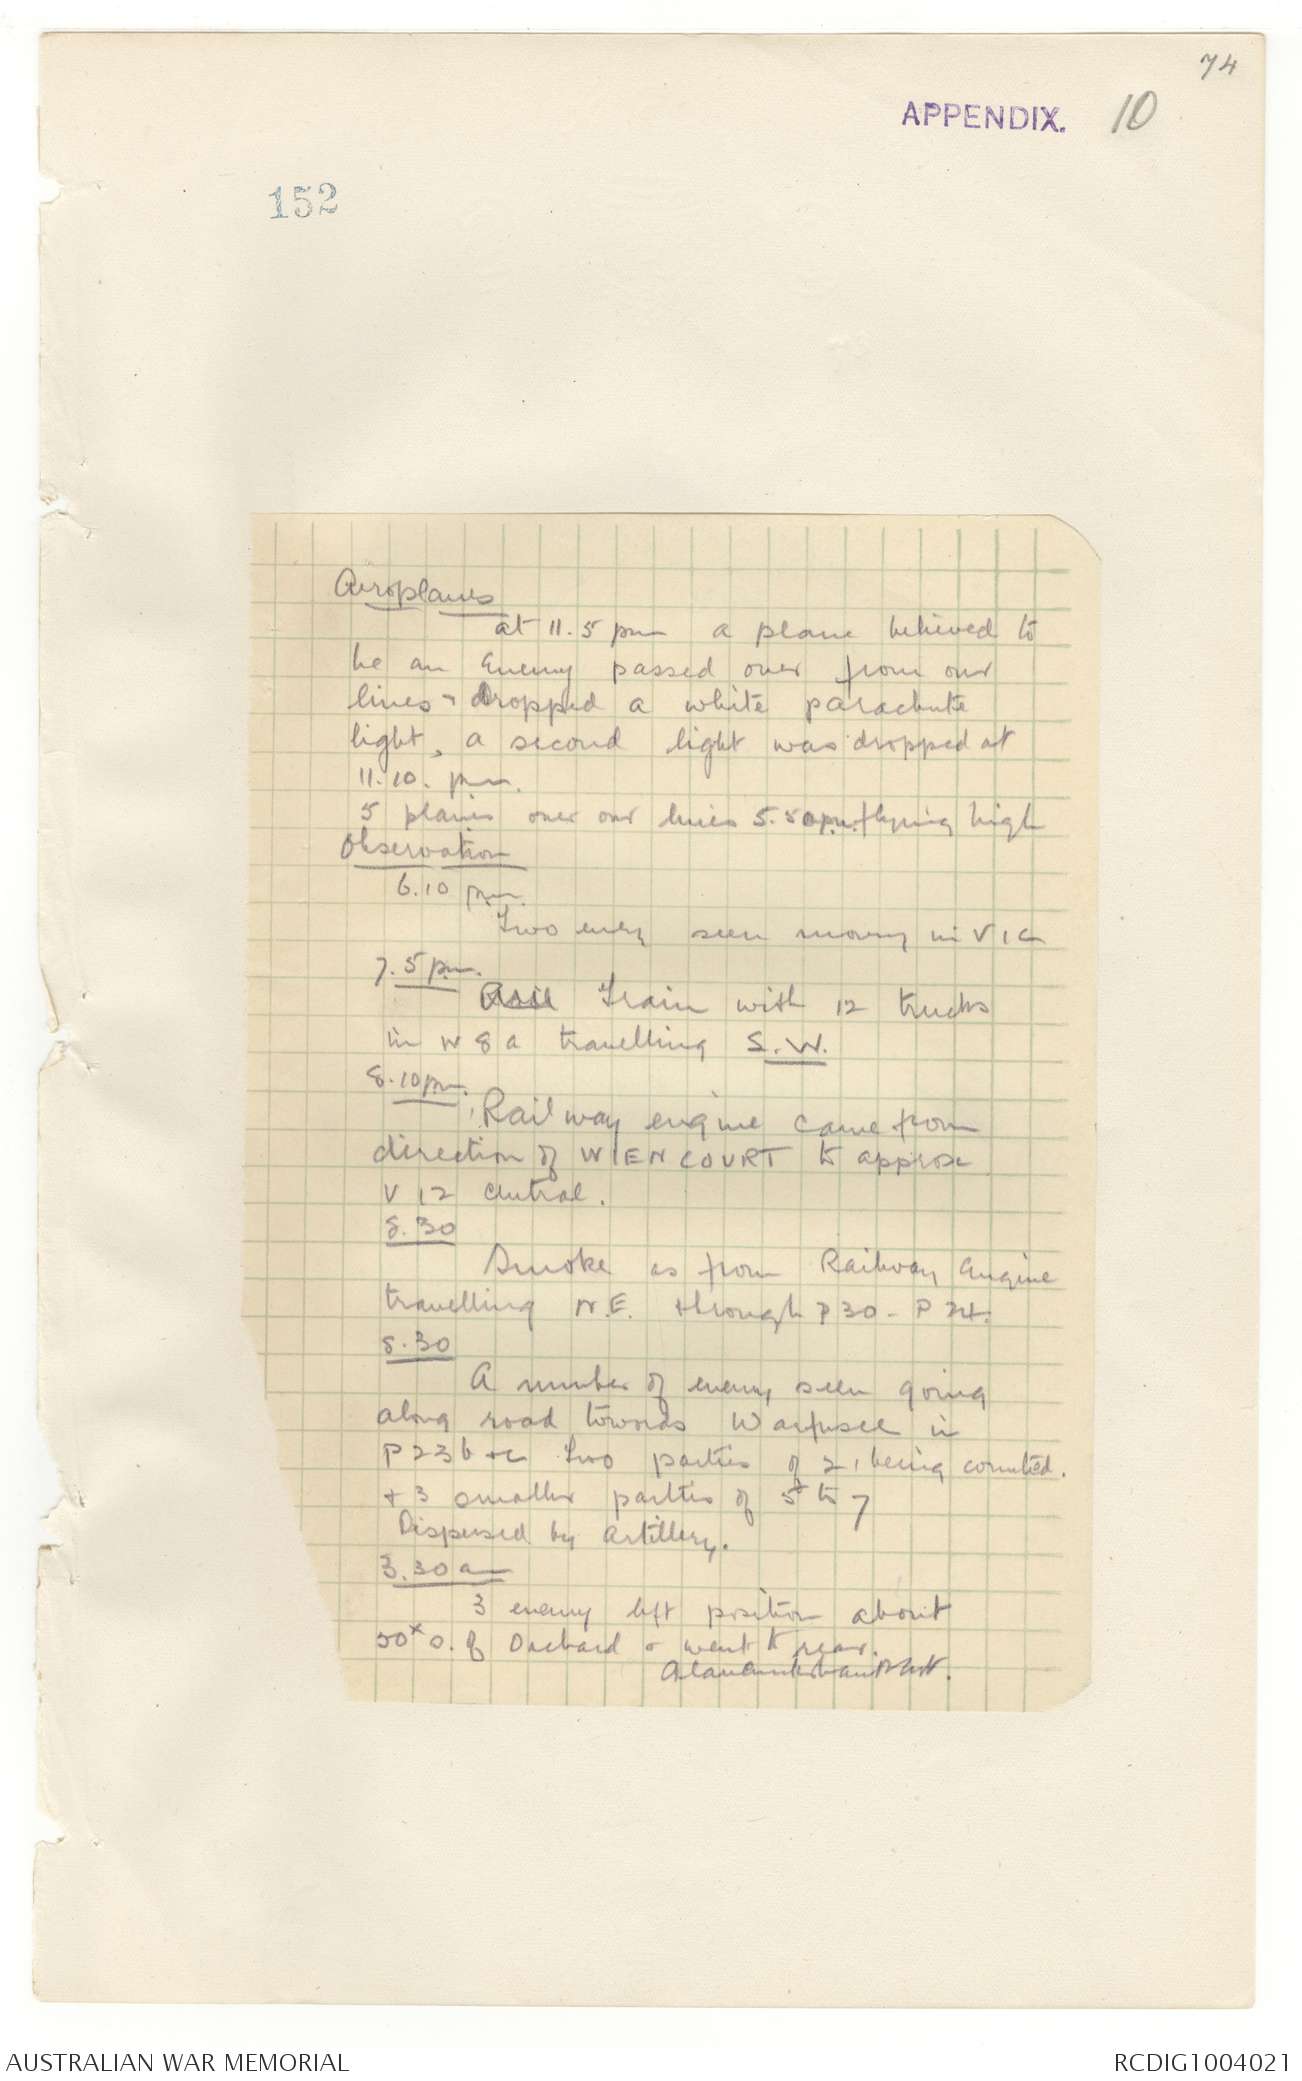 74
APPENDIX. 10
152
Aeroplanes
at 11.5 pm a plane believed to
be an Enemy passed over from our
lines & dropped a white parachute
light, a second light was dropped at
11.10. pm.
5 planes over our lines 5.50 pm. flying high
Observation
6.10 pm.
Two enemy seen moving in V1c
7.5 pm.
Train with 12 trucks
in W8a travelling S.W.
8.10 pm.
Railway engine came from
direction of WIENCOURT to approx
V12 central.
8.30
Smoke as from Railway Engine
travelling N.E. through P30 - P24.
8.30
A number of enemy seen going
along road towards Warfusee in
P23b + c Two parties of 21 being counted.
+ 3 smaller parties of 5 to 7
Dispersed by Artillery.
3.30 am
3 enemy left position about
50x S. of Orchard & went to rear.
AUSTRALIAN WAR MEMORIAL
RCDIG1004021